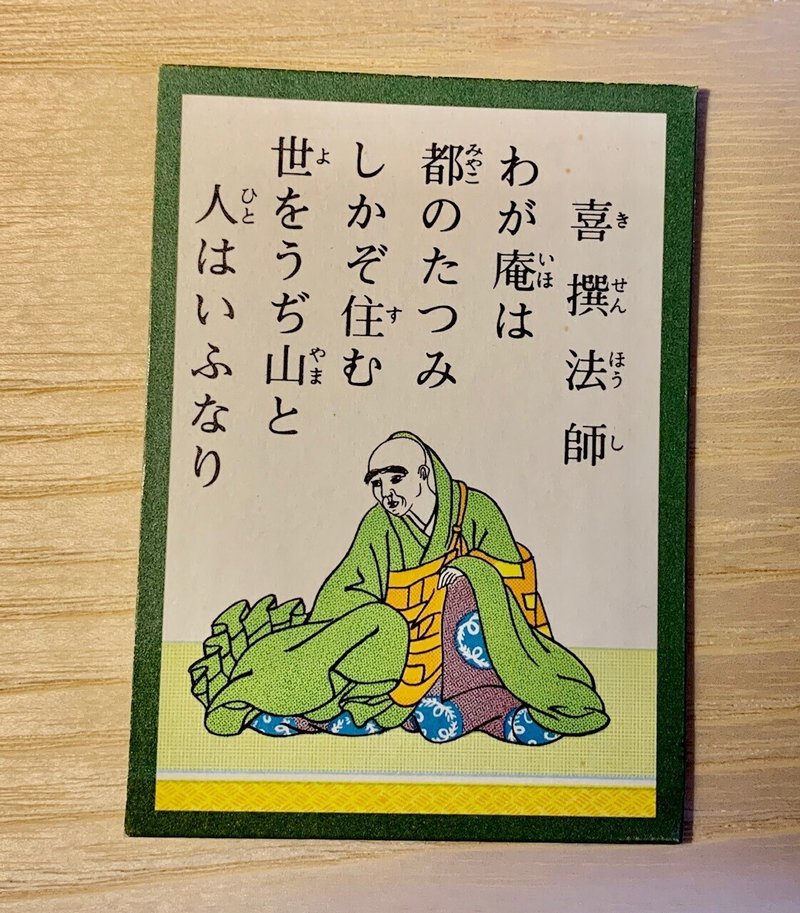 喜撰法師
わが庵は
都のたつみ
しかぞ住む
世をうぢ山と
人はいふなり